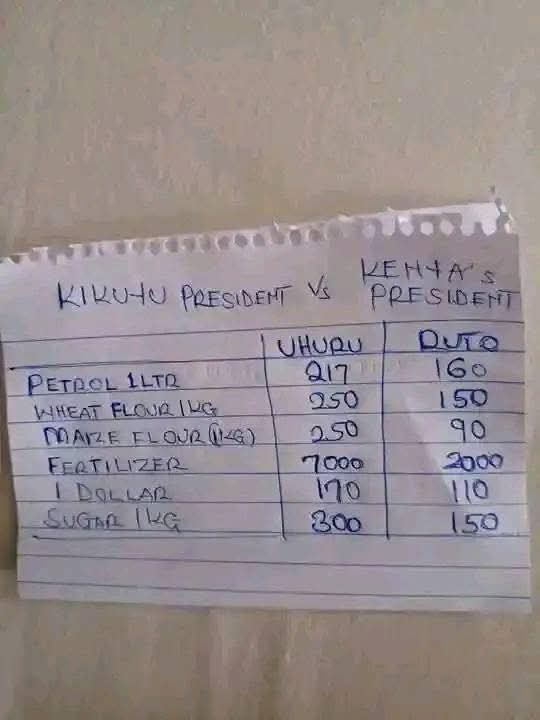 KIKUYU PRESIDENT Vs KENYA's PRESIDENT
UHURU RUTO
PETROL 1LTR 217 160
WHEAT FLOUR 1KG 250 150
MAIZE FLOUR (1KG) 250 90
FERTILIZER 7000 2000
1 DOLLAR 170 110
SUGAR 1KG 300 150